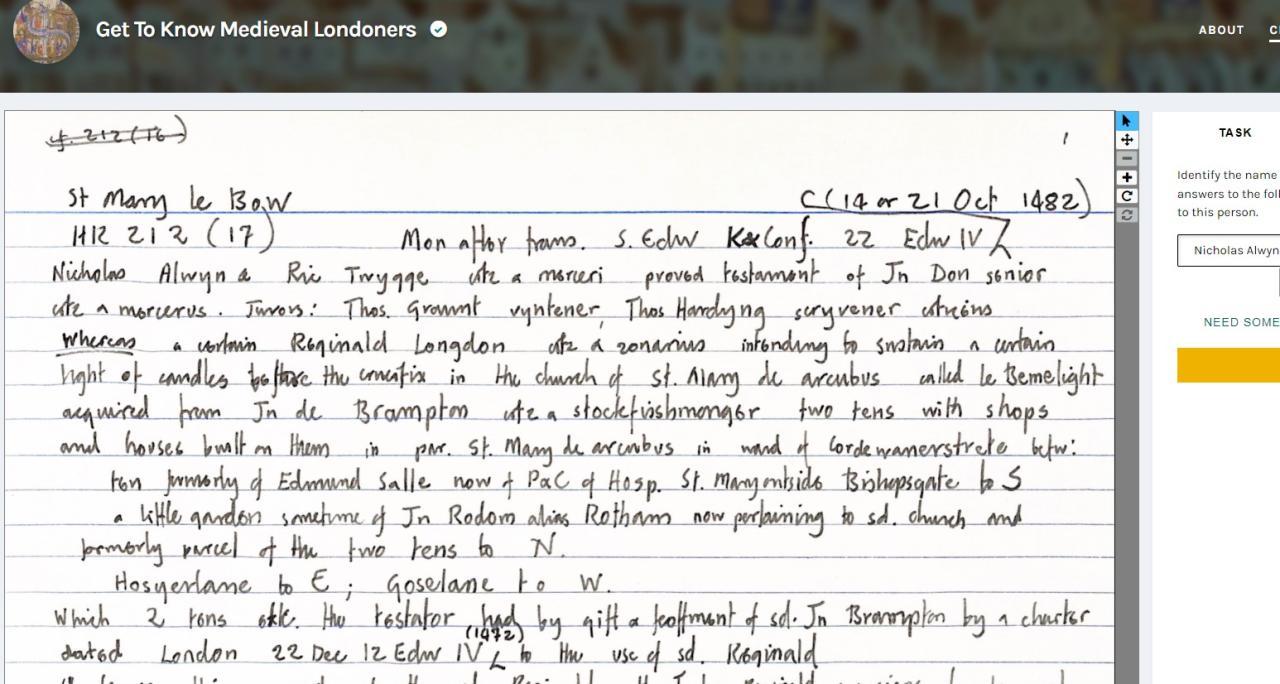 Get To Know Medieval Londoners
ABOUT
f. 212 (16)
1
TASK
Identify the name
answers to the foll
to this person.
Nicholas Alwyn
NEED SOME
St Mary le Bow
(14 or 21 Oct 1482)
HR 212 (17)
Mon after trans. S. Edw K & Conf. 22 Edw IV
Nicholas Alwyn & Ric Twygge citz & merceri proved testament of Jn Don senior
citz & mercerus. Jurors: Thos. Graunt vyntener, Thos Hardyng scryvener
Whereas a certain Reginald Longdon citz & zonarius intending to sustain a certain
light of candles before the crucifix in the church of St. Mary de arcubus called le Bemelight
acquired from Jn de Brampton citz & stockfisshmonger two tens with shops
and houses built on them in par. St. Mary de arcubus in ward of Cordewanerstrete betw:
ten formerly of Edmund Salle now of P&C of Hosp. St. Mary outside Bishopsgate to S
a little garden sometime of Jn Rodom alias Rotham now pertaining to sd. church and
formerly parcel of the two tens to N.
Hosyerlane to E; Goselane to W.
Which 2 tens etc. the testator had by gift & feoffment of sd. Jn Brampton by a charter
dated London 22 Dec 12 Edw IV (1472) to the use of sd. Reginald